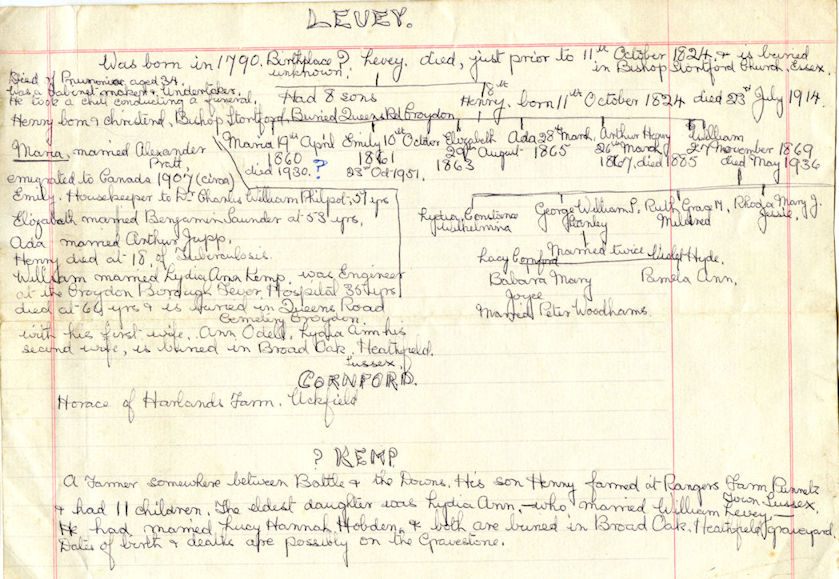 LEVEY.
Was born in 1790. Birthplace? Levey. died, just prior to 11th October 1824. & is buried
unknown,
in Bishop Stortford Church, Essex.
Died of Pneumonia, aged 34.
was a Cabinet maker & Undertaker.
He took a chill conducting a funeral.
Had 8 sons
8th
Henry, born 11th October 1824 died 23rd July 1914.
Henry born & christend, Bishop Stortford, Buried Queens Rd Croydon
Maria 19th April 1860 died 1930. ?
Emily 10th October 1861 23rd Oct 1951.
Elizabeth 29th August 1863
Ada 28th March 1865
Arthur Henry 26th March 1867, died 1885
William 27th November 1869 died May 1936
Maria, married Alexander
Pratt
emigrated to Canada 1907 (circa)
Emily. Housekeeper to Dr Charles William Philpot, 57 yrs
Elizabeth married Benjamin Saunder at 53 yrs.
Ada married Arthur Jupp.
Henry died at 18, of Tuberculosis.
William married Lydia Ann Kemp, was Engineer
at the Croydon Borough Fever Hospital 35 yrs
died at 66 yrs & is buried in Queens Road
Cemetery Croydon.
with his first wife, Ann Odell, Lydia Ann his
second wife, is buried in Broad Oak, Heathfield.
Sussex.
Lydia Constance Wilhelmina
George William S. Stanley
Ruth Grace M. Mildred
Rhoda Mary J. Jessie.
Married twice
Lucy Cornford
Violet Hyde,
Babara Mary
Joyce
Pamela Ann,
Married Peter Woodhams.
CORNFORD.
Horace of Harlands Farm. Uckfield
? KEMP.
A Farmer somewhere between Battle & the Downs. His son Henry farmed at Rangers Farm, Punnetts
Town Sussex.
& had 11 children. The eldest daughter was Lydia Ann, — who married William Levey —
He had married Lucy Hannah Hobden, & both are buried in Broad Oak, Heathfield graveyard.
Dates of birth & deaths are possibly on the Gravestone.